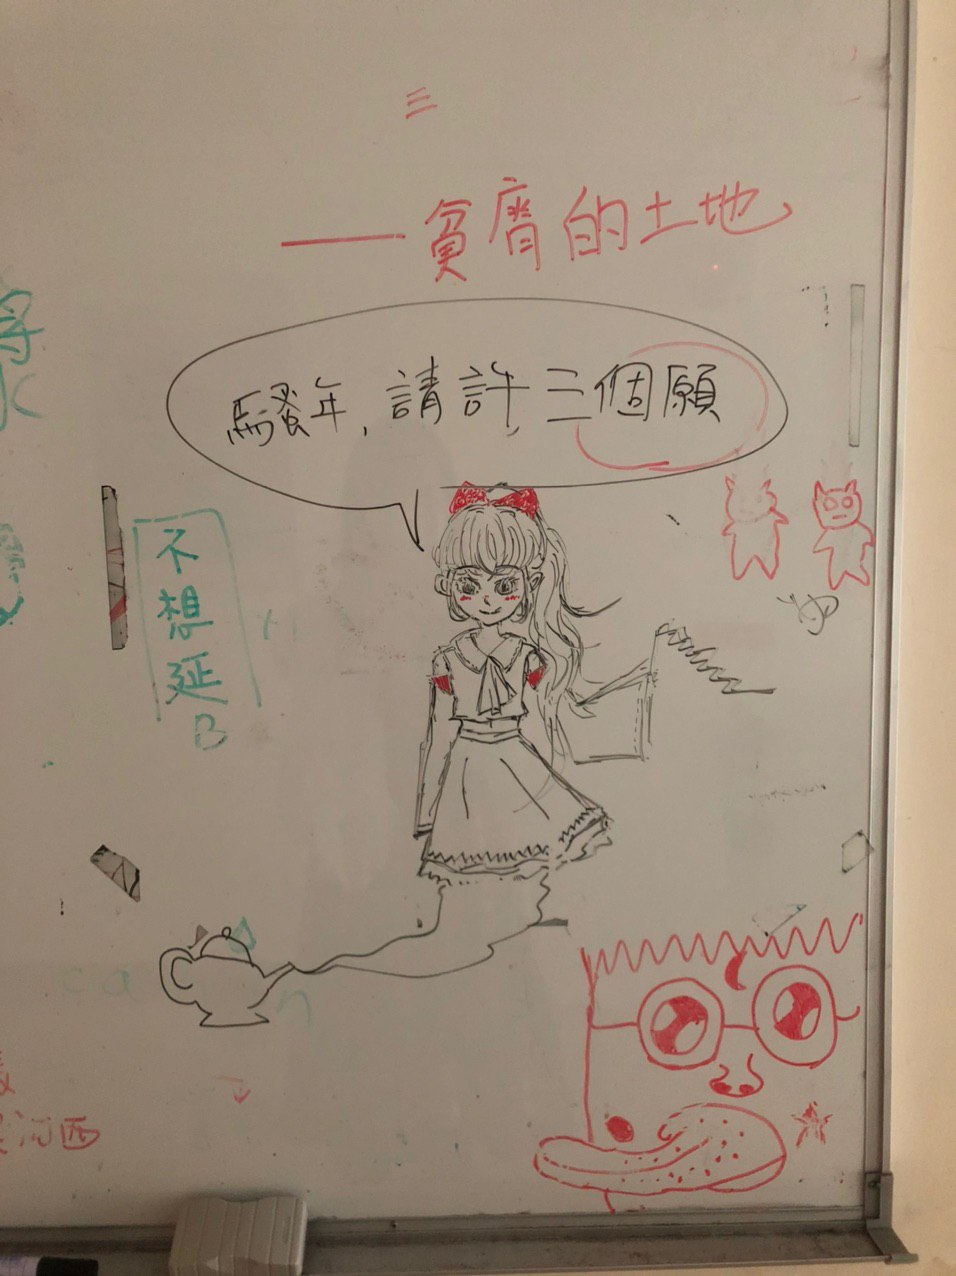 三
——貧瘠的土地
騷年,請許三個願
不想延B
河西